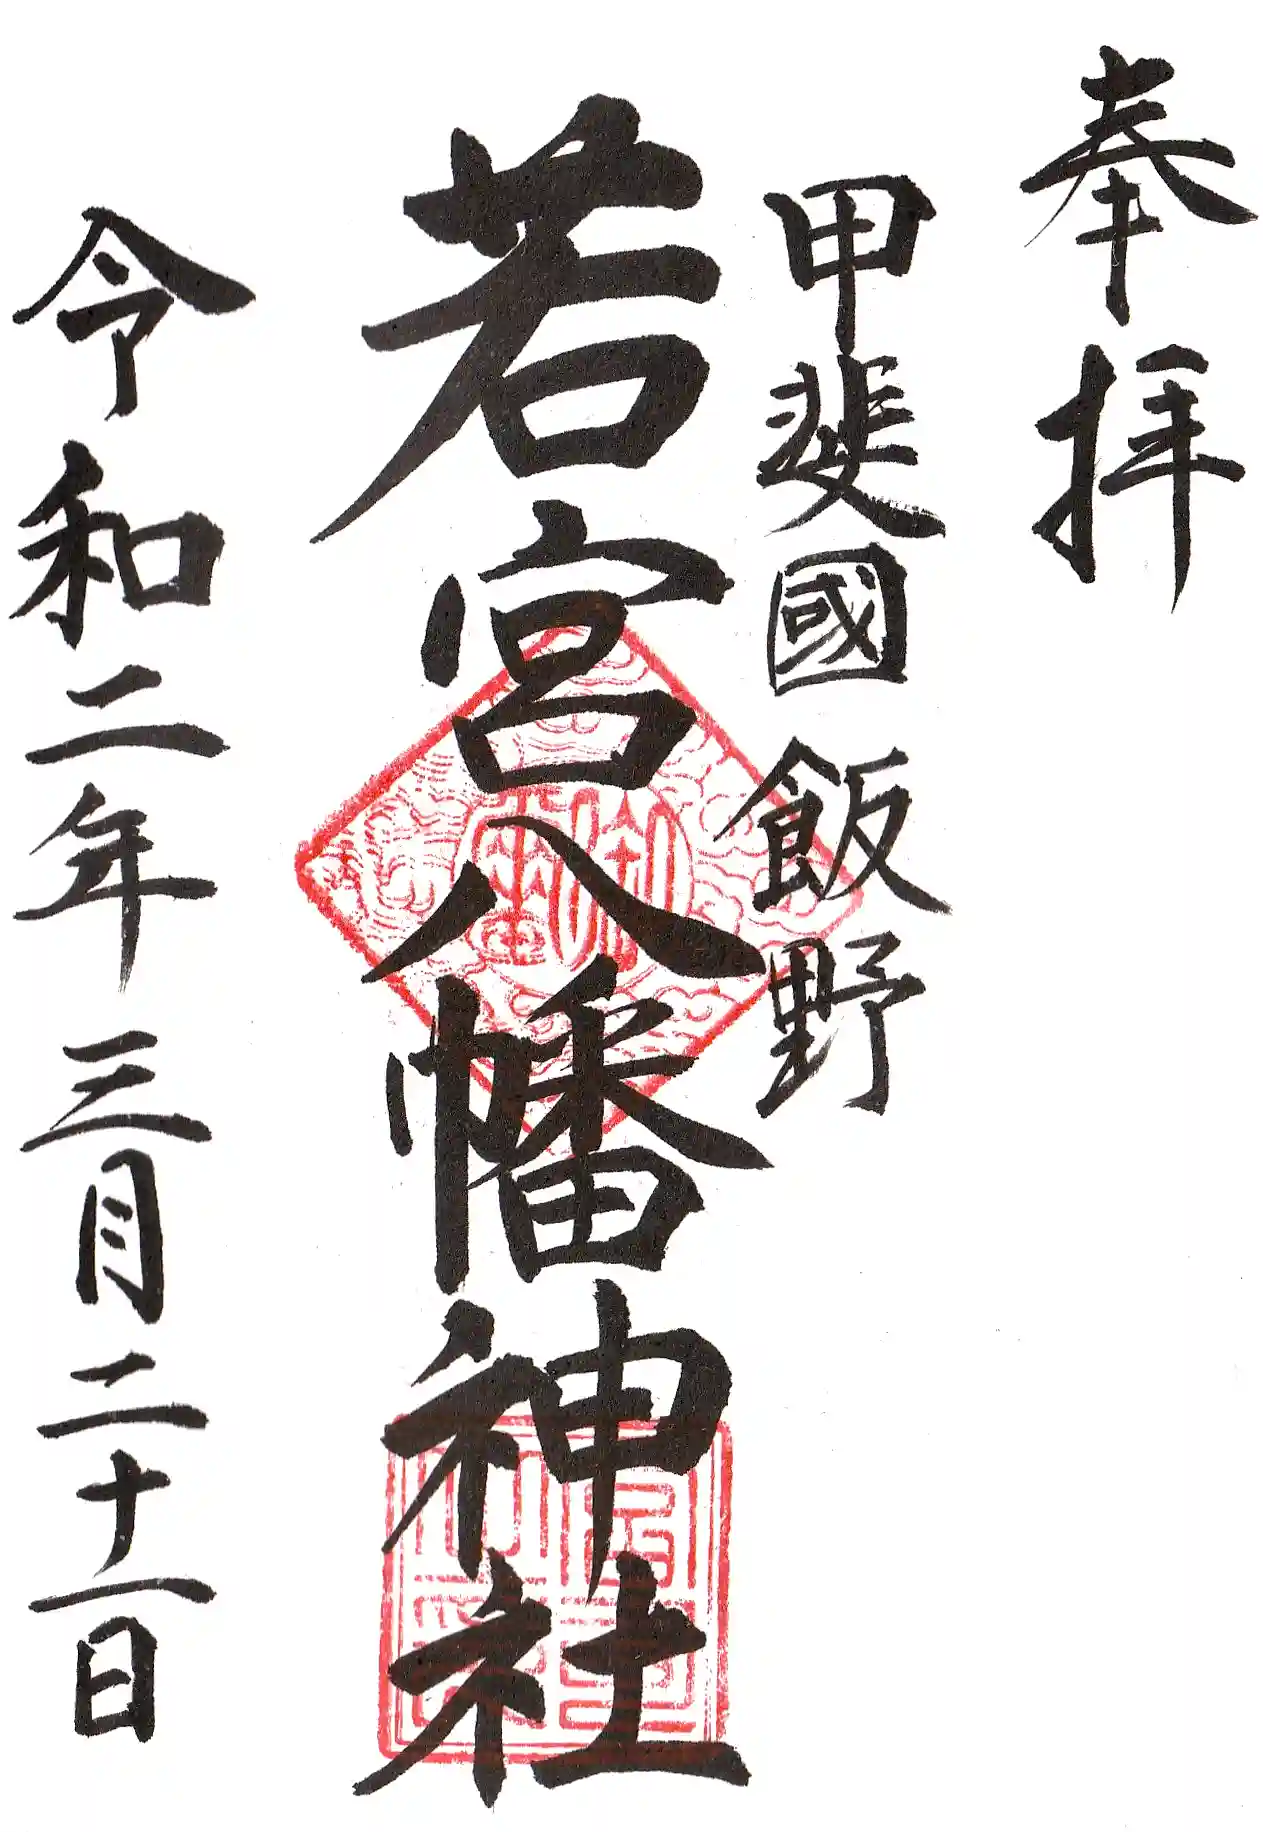 奉拝
甲斐國飯野
若宮八幡神社
令和二年三月二十一日